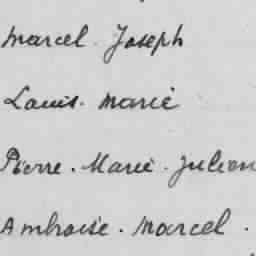 Marcel. Joseph
Louis. Marie
Pierre. Marie. Julien
Ambroise. Marcel.